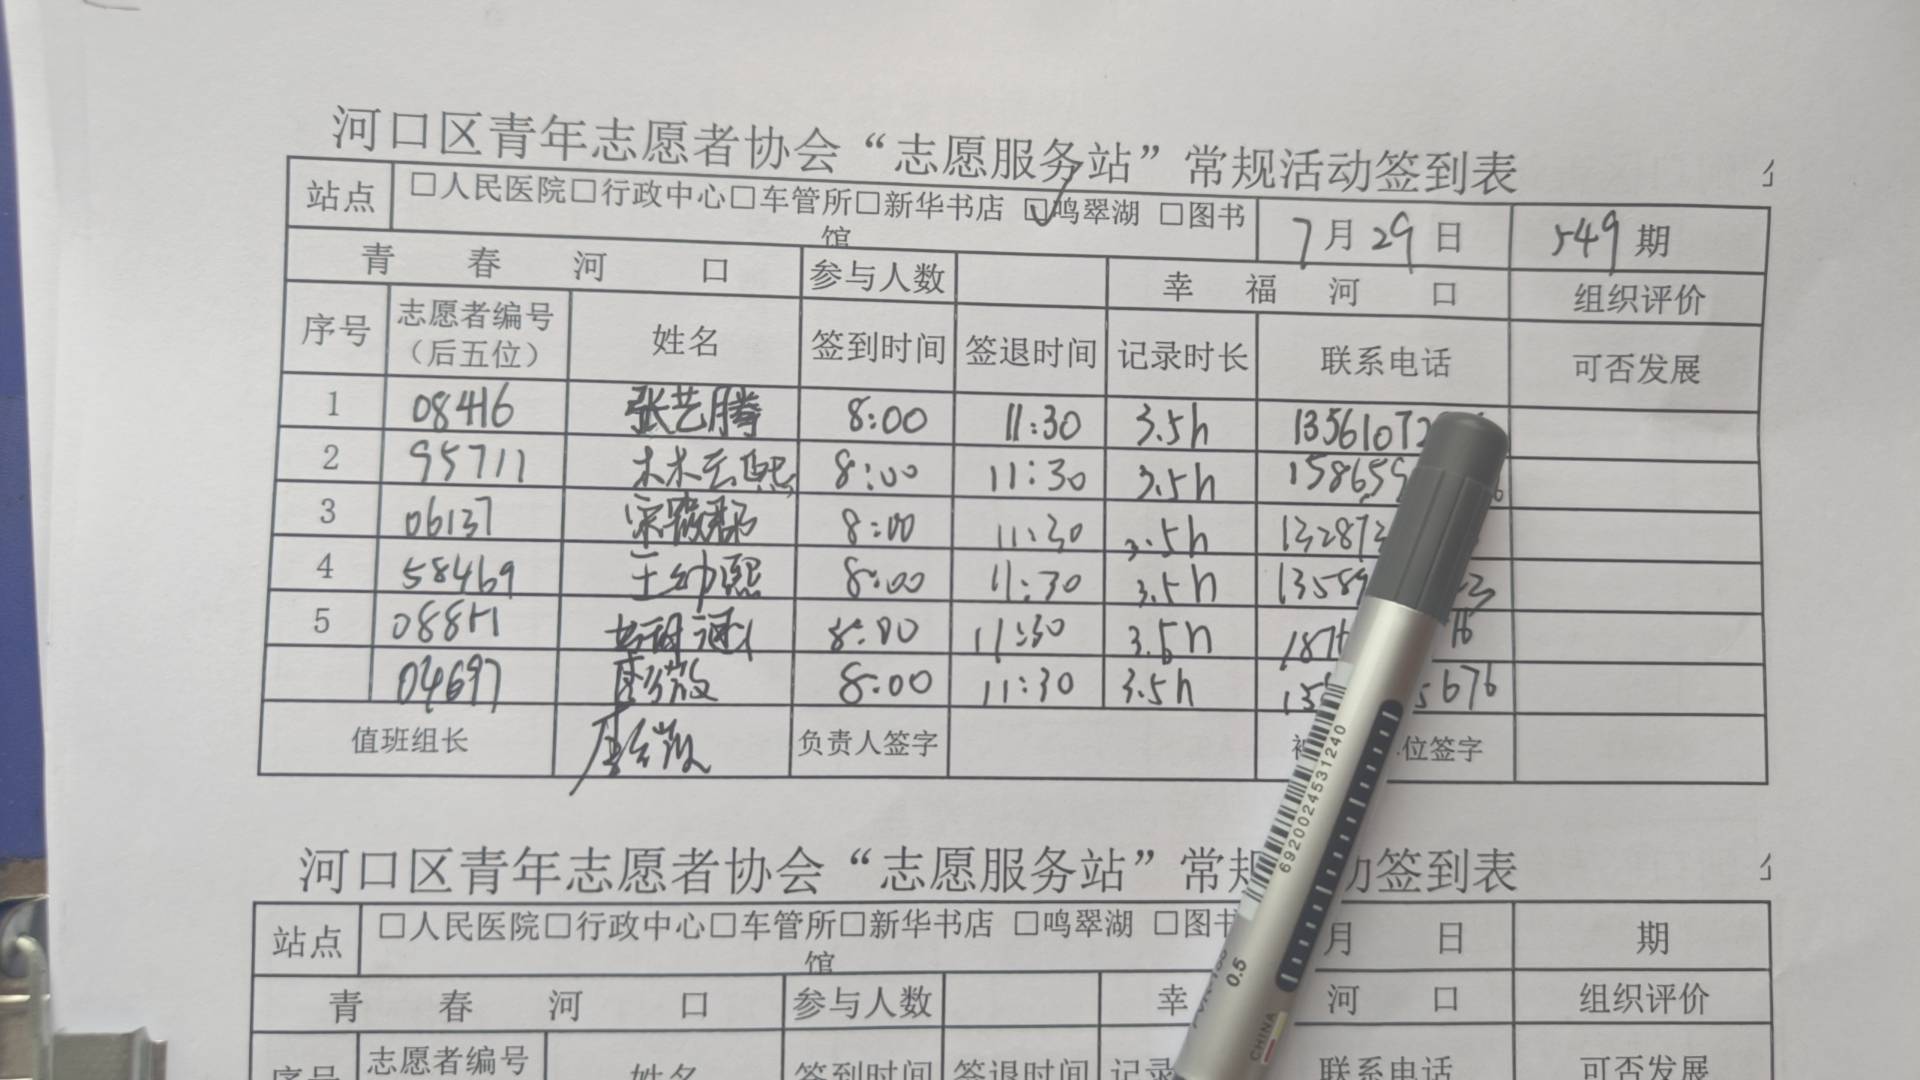 河口区青年志愿者协会“志愿服务站”常规活动签到表
站点 □人民医院□行政中心□车管所□新华书店 ☑鸣翠湖 □图书馆 7月29日 549期
青春河口 参与人数 幸福河口 组织评价
序号 志愿者编号（后五位） 姓名 签到时间 签退时间 记录时长 联系电话 可否发展
1 08416 张艺腾 8:00 11:30 3.5h 13561072
2 95711 8:00 11:30 3.5h 158659
3 06137 8:00 11:30 3.5h 132873
4 58469 王幼熙 8:00 11:30 3.5h 1358
5 8:00 11:30 3.5h 187
04697 8:00 11:30 3.5h 5676
值班组长 负责人签字 位签字
6920024531240
河口区青年志愿者协会“志愿服务站”常规 动签到表
站点 □人民医院□行政中心□车管所□新华书店 □鸣翠湖 □图书馆 月 日 期
0.5
青春河口 参与人数 幸 河口 组织评价
CHINA
序号 志愿者编号 姓名 签到时间 签退时间 记录 联系电话 可否发展